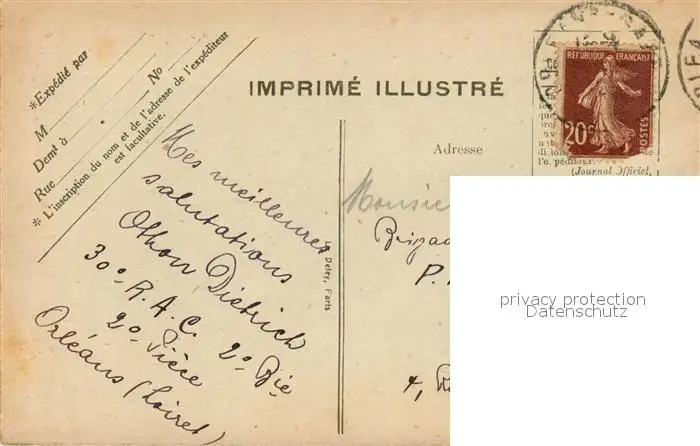 *Expédié par
M
Demt à
Rue No
* L'inscription du nom et de l'adresse de l'expéditeur
est facultative.
IMPRIMÉ ILLUSTRÉ
RÉPUBLIQUE FRANÇAISE
20c
POSTES
(Journal Officiel,
Adresse
Deley, Paris
Mes meilleures
salutations
Othon Dietrich
30e R.A.C. 2e Bie
2e Pièce
Orléans (Loiret)
Monsie
Brigad
P.
4, R
privacy protection
Datenschutz